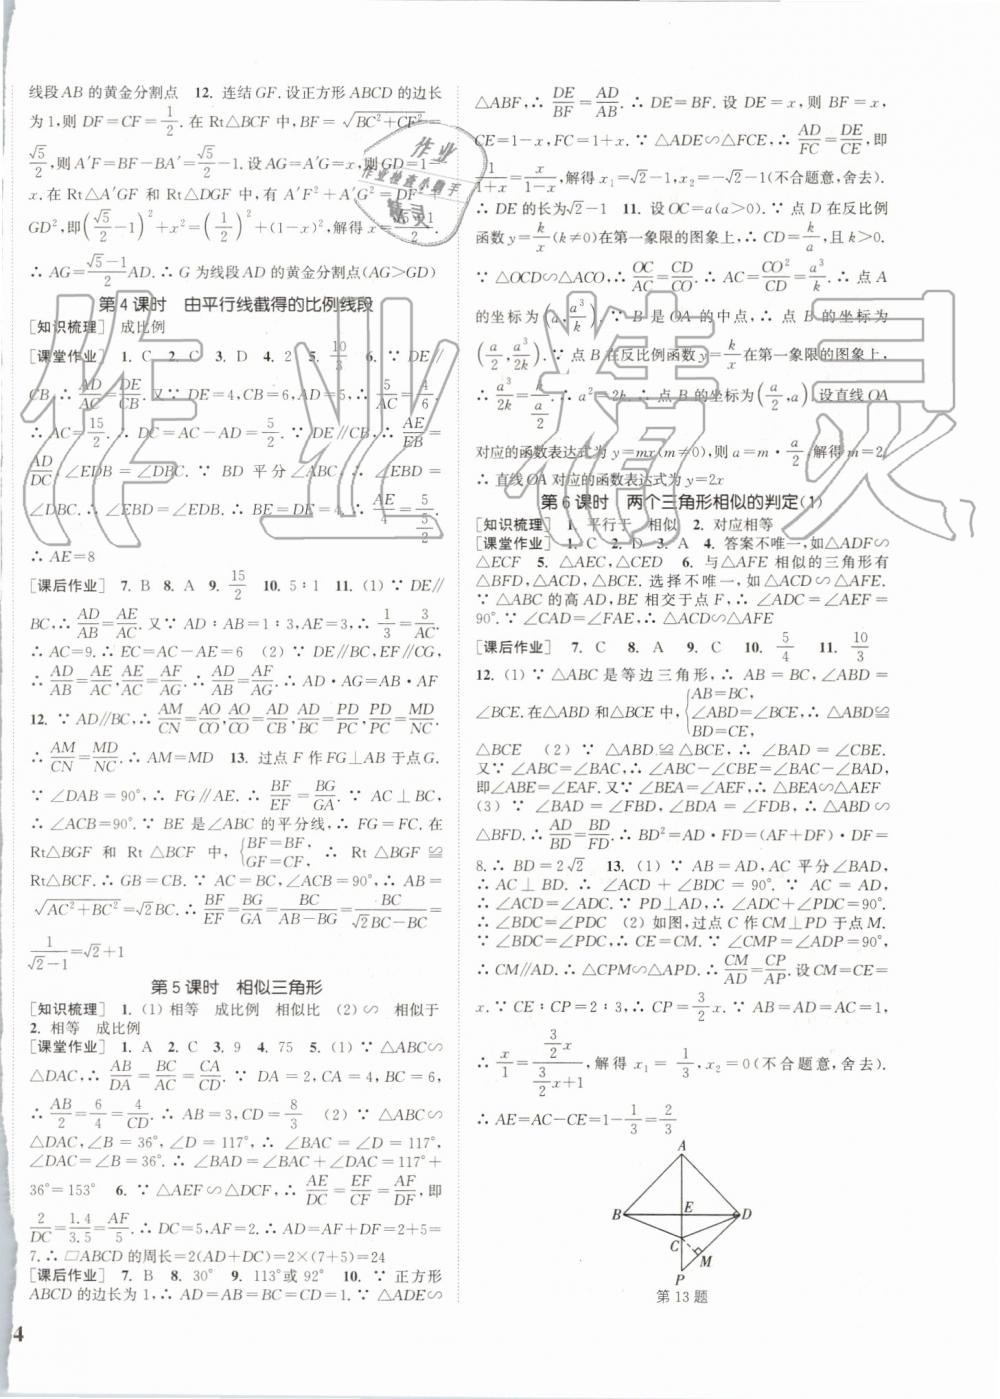 线段AB的黄金分割点 12. 连结GF.设正方形ABCD的边长
为1,则DF=CF=1/2.在Rt△BCF中,BF=√(BC²+CF²)=
√5/2,则A′F=BF-BA′=√5/2-1.设AG=A′G=x,则GD=1-
x.在Rt△A′GF和Rt△DGF中,有A′F²+A′G²=DF²+
GD²,即(√5/2-1)²+x²=(1/2)²+(1-x)²,解得x=(√5-1)/2.
∴AG=(√5-1)/2 AD.∴G为线段AD的黄金分割点(AG>GD)
第4课时 由平行线截得的比例线段
[知识梳理] 成比例
[课堂作业] 1. C 2. C 3. D 4. 2 5. 10/3 6. ∵DE∥
CB,∴AD/AC=DE/CB.又∵DE=4,CB=6,AD=5,∴5/AC=4/6.
∴AC=15/2.∴DC=AC-AD=5/2.∵DE∥CB,∴AE/EB=
AD/DC,∠EDB=∠DBC.∵BD平分∠ABC,∴∠EBD=
∠DBC.∴∠EBD=∠EDB.∴BE=DE=4.∴AE/4=5/(5/2).
∴AE=8
[课后作业] 7. B 8. A 9. 15/2 10. 5∶1 11. (1)∵DE∥
BC,∴AD/AB=AE/AC.又∵AD∶AB=1∶3,AE=3,∴1/3=3/AC.
∴AC=9.∴EC=AC-AE=6 (2)∵DE∥BC,EF∥CG,
∴AD/AB=AE/AC,AE/AC=AF/AG.∴AD/AB=AF/AG.∴AD·AG=AB·AF
12. ∵AD∥BC,∴AM/CN=AO/CO,AO/CO=AD/CB,AD/BC=PD/PC,PD/PC=MD/NC.
∴AM/CN=MD/NC.∴AM=MD 13. 过点F作FG⊥AB于点G.
∵∠DAB=90°,∴FG∥AE.∴BF/EF=BG/GA.∵AC⊥BC,
∴∠ACB=90°.∵BE是∠ABC的平分线,∴FG=FC.在
Rt△BGF和Rt△BCF中,{BF=BF,GF=CF,∴Rt△BGF≌
Rt△BCF.∴GB=CB.∵AC=BC,∠ACB=90°,∴AB=
√(AC²+BC²)=√2BC.∴BF/EF=BG/GA=BC/(AB-BG)=BC/(√2BC-BC)=
1/(√2-1)=√2+1
第5课时 相似三角形
[知识梳理] 1. (1)相等 成比例 相似比 (2)∽ 相似于
2. 相等 成比例
[课堂作业] 1. A 2. C 3. 9 4. 75 5. (1)∵△ABC∽
△DAC,∴AB/DA=BC/AC=CA/CD.∵DA=2,AC=4,BC=6,
∴AB/2=6/4=4/CD.∴AB=3,CD=8/3 (2)∵△ABC∽
△DAC,∠B=36°,∠D=117°,∴∠BAC=∠D=117°,
∠DAC=∠B=36°.∴∠BAD=∠BAC+∠DAC=117°+
36°=153° 6. ∵△AEF∽△DCF,∴AE/DC=EF/CF=AF/DF,即
2/DC=1.4/3.5=AF/5.∴DC=5,AF=2.∴AD=AF+DF=2+5=
7.∴□ABCD的周长=2(AD+DC)=2×(7+5)=24
[课后作业] 7. B 8. 30° 9. 113°或92° 10. ∵正方形
ABCD的边长为1,∴AD=AB=BC=CD=1.∵△ADE∽
△ABF,∴DE/BF=AD/AB.∴DE=BF.设DE=x,则BF=x,
CE=1-x,FC=1+x.∵△ADE∽△FCE,∴AD/FC=DE/CE,即
1/(1+x)=x/(1-x),解得x₁=√2-1,x₂=-√2-1(不合题意,舍去).
∴DE的长为√2-1 11. 设OC=a(a>0).∵点D在反比例
函数y=k/x(k≠0)在第一象限的图象上,∴CD=k/a,且k>0.
∵△OCD∽△ACO,∴OC/AC=CD/CO.∴AC=CO²/CD=a³/k.∴点A
的坐标为(a,a³/k).∵B是OA的中点,∴点B的坐标为
(a/2,a³/2k).∵点B在反比例函数y=k/x在第一象限的图象上,
∴a³/2k=k/(a/2).∴a²=2k.∴点B的坐标为(a/2,a).设直线OA
对应的函数表达式为y=mx(m≠0),则a=m·a/2,解得m=2.
∴直线OA对应的函数表达式为y=2x
第6课时 两个三角形相似的判定(1)
[知识梳理] 1. 平行于 相似 2. 对应相等
[课堂作业] 1. C 2. D 3. A 4. 答案不唯一,如△ADF∽
△ECF 5. △AEC,△CED 6. 与△AFE相似的三角形有
△BFD,△ACD,△BCE.选择不唯一,如△ACD∽△AFE.
∵△ABC的高AD,BE相交于点F,∴∠ADC=∠AEF=
90°.∵∠CAD=∠FAE,∴△ACD∽△AFE
[课后作业] 7. C 8. A 9. C 10. 5/4 11. 10/3
12. (1)∵△ABC是等边三角形,∴AB=BC,∠ABD=
∠BCE.在△ABD和△BCE中,{AB=BC,∠ABD=∠BCE,BD=CE,∴△ABD≌
△BCE (2)∵△ABD≌△BCE,∴∠BAD=∠CBE.
又∵∠ABC=∠BAC,∴∠ABC-∠CBE=∠BAC-∠BAD,
即∠ABE=∠EAF.又∵∠BEA=∠AEF,∴△BEA∽△AEF
(3)∵∠BAD=∠FBD,∠BDA=∠FDB,∴△ABD∽
△BFD.∴AD/BD=BD/FD.∴BD²=AD·FD=(AF+DF)·DF=
8.∴BD=2√2 13. (1)∵AB=AD,AC平分∠BAD,
∴AC⊥BD.∴∠ACD+∠BDC=90°.∵AC=AD,
∴∠ACD=∠ADC.∵PD⊥AD,∴∠ADC+∠PDC=90°.
∴∠BDC=∠PDC (2)如图,过点C作CM⊥PD于点M.
∵∠BDC=∠PDC,∴CE=CM.∵∠CMP=∠ADP=90°,
∴CM∥AD.∴△CPM∽△APD.∴CM/AD=CP/AP.设CM=CE=
x.∵CE∶CP=2∶3,∴CP=3/2 x.∵AB=AD=AC=1,
∴x/1=(3/2 x)/(3/2 x+1),解得x₁=1/3,x₂=0(不合题意,舍去).
∴AE=AC-CE=1-1/3=2/3
A
B E D
C
M
P
第13题
4